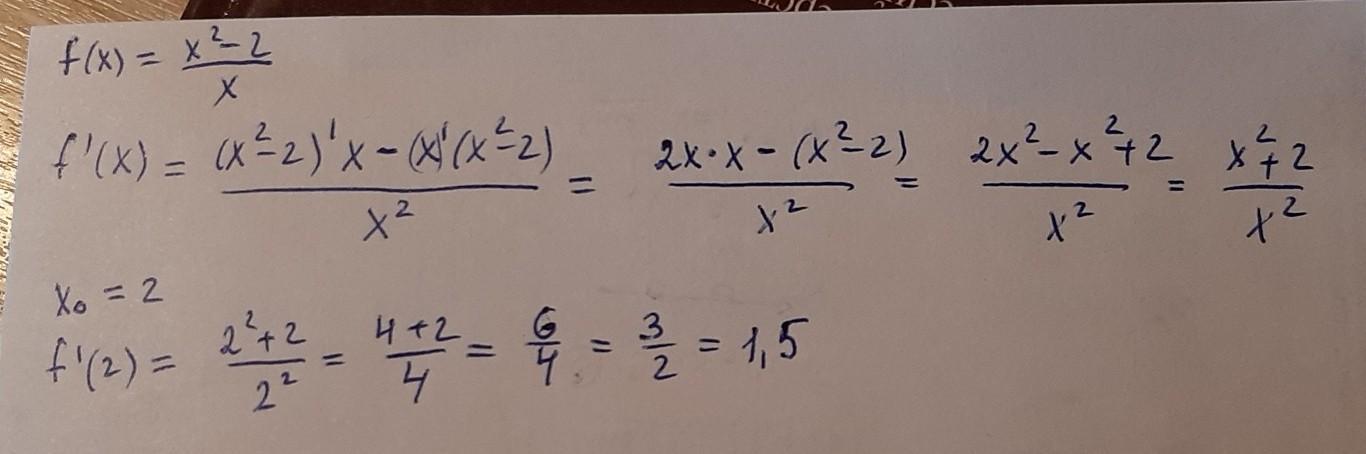 f(x) = (x²-2)/x
f'(x) = ((x²-2)'x - (x)'(x²-2))/x² = (2x·x - (x²-2))/x² = (2x²-x²+2)/x² = (x²+2)/x²
x₀ = 2
f'(2) = (2²+2)/2² = (4+2)/4 = 6/4 = 3/2 = 1,5